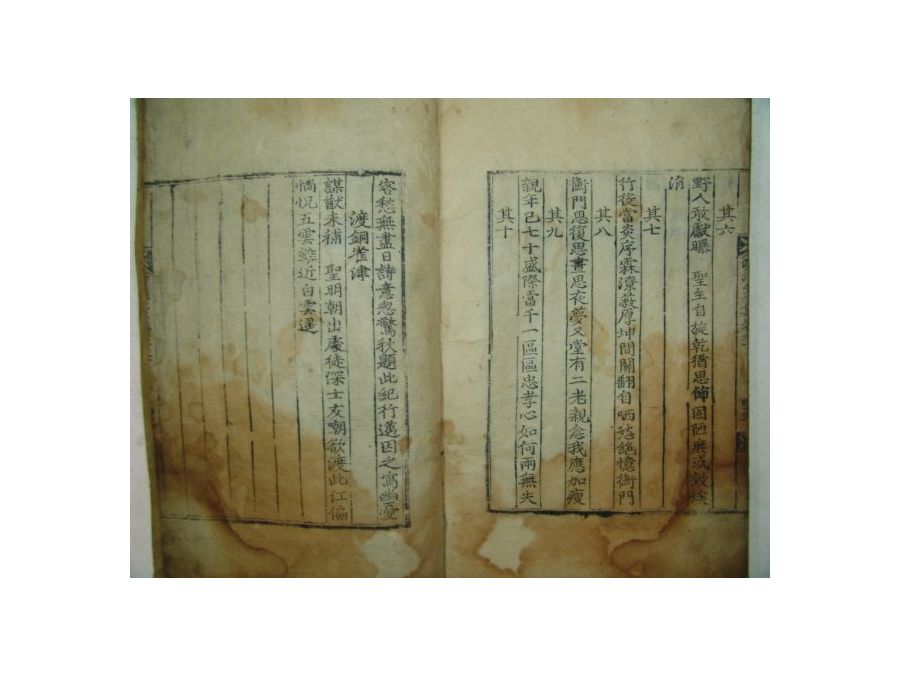 其六
野人敢獻曝 聖主自旋乾猶思怖固陋無或效埃
涓
其七
行後當炎序霖潦蔽厚坤間關翻自哂愁絶憶衡門
其八
衡門思復思晝思夜夢又堂有二老親念我應加瘦
其九
親年已七十盛際當千一區區忠孝心如何兩無失
其十
客愁無盡日詩意忽驚秋題此紀行邁因之寫幽憂
渡銅雀津
謀猷未補 聖明朝出處徒深士友嘲欲渡此江偏
惝怳五雲雖近白雲遥